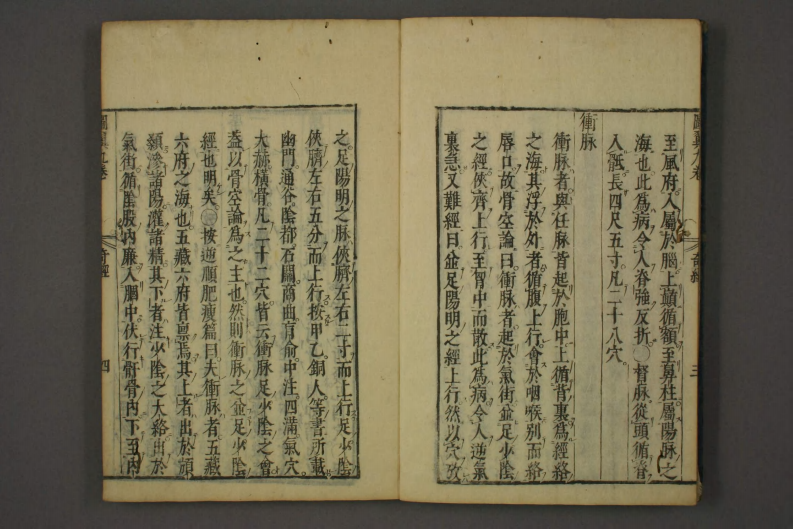 至風府入屬於腦上顚循額至鼻柱屬陽脉之
海也此為病令人脊強反折○督脉從頭循脊
入骶長四尺五寸凡二十八穴
衝脉
衝脉者與任脉皆起於胞中上循背裏為經絡
之海其浮於外者循腹上行會於咽喉別而絡
唇口故骨空論曰衝脉者起於氣街並足少陰
之經俠齊上行至胷中而散此為病令人逆氣
裏急又難經曰並足陽明之經上行然以穴攷
之足陽明之脉俠臍左右二寸而上行足少陰
俠臍左右五分而上行按甲乙銅人等書所載
幽門通谷陰都石關商曲肓俞中注四滿氣穴
大赫橫骨凡二十二穴皆云衝脉足少陰之會
葢以骨空論為之主也然則衝脉之並足少陰
經也明矣○按逆順肥瘦篇曰夫衝脉者五藏
六府之海也五藏六府皆禀焉其上者出於頏
顙滲諸陽灌諸精其下者注少陰之大絡出於
氣街循陰股內廉入膕中伏行骭骨內下至內
奇經
四
三